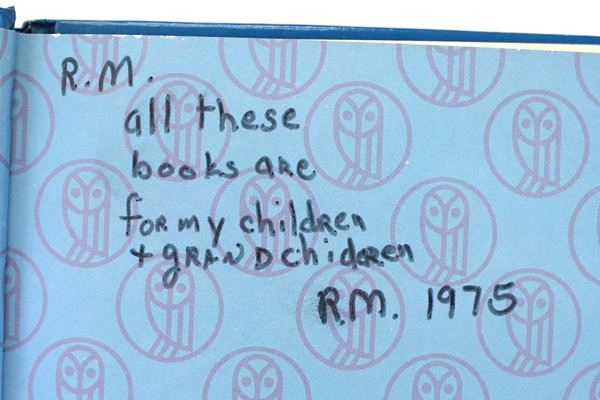 R.M.
all these
books are
for my children
+ grandchidren
R.M. 1975